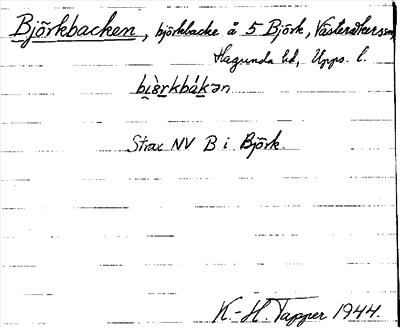 Björkbacken, björkbacke å 5 Björk, Västeråkers sn,
Hagunda hd, Upps. l.
bi̯örkbàkən
Strax NV B i Björk.
K.-H. Tapper 1944.